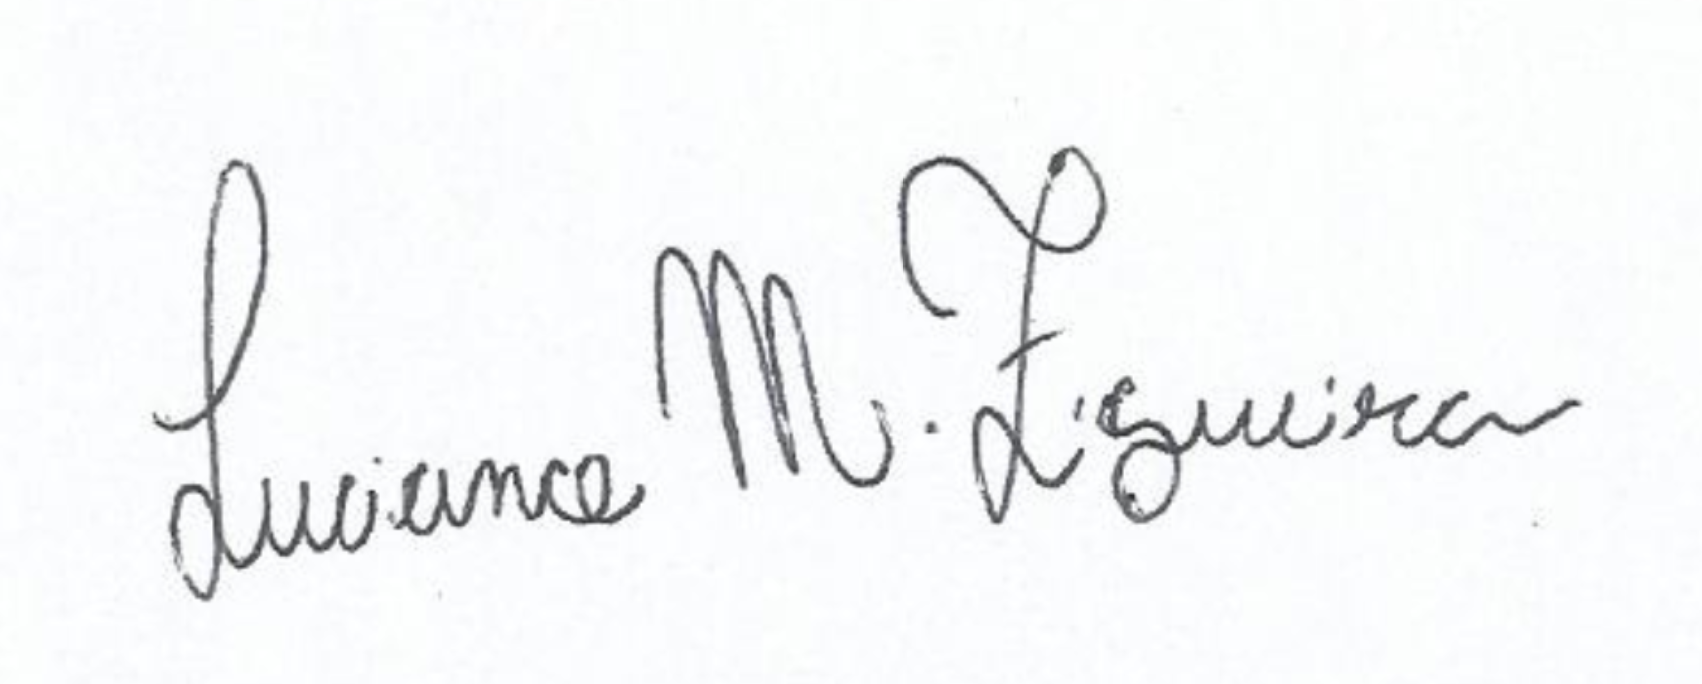 Luciana M. Figueira